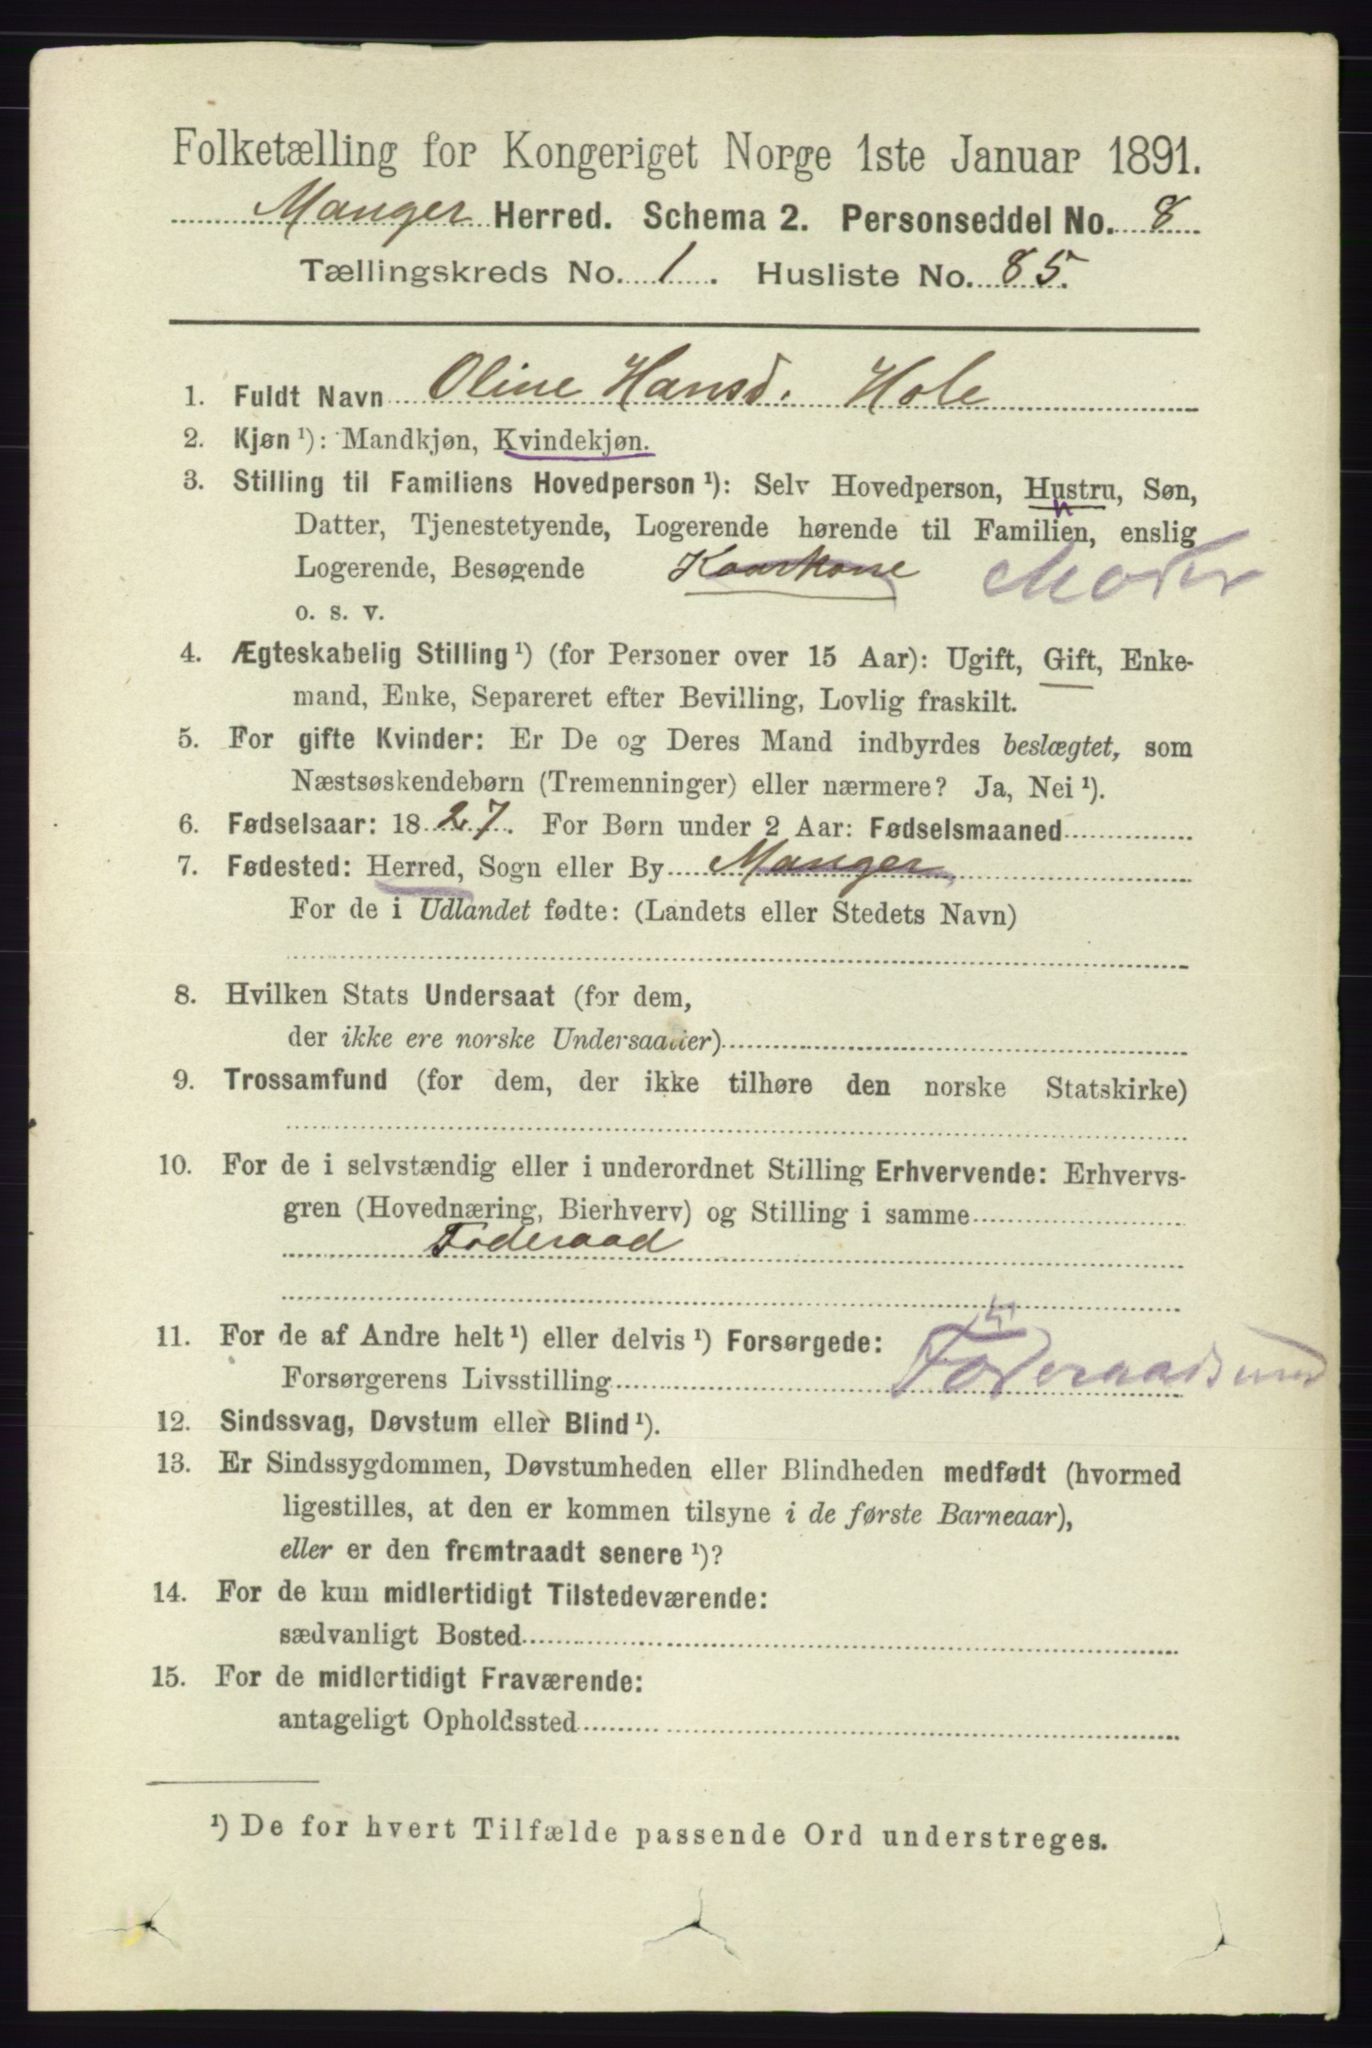 Folketælling for Kongeriget Norge 1ste Januar 1891.
Manger Herred. Schema 2. Personseddel No. 8
Tællingskreds No. 1. Husliste No. 85.
1. Fuldt Navn Oline Hansd. Hole
2. Kjøn ¹): Mandkjøn, Kvindekjøn.
3. Stilling til Familiens Hovedperson ¹): Selv Hovedperson, Hustru, Søn,
Datter, Tjenestetyende, Logerende hørende til Familien, enslig
Logerende, Besøgende Kaarkone Moder
o. s. v.
4. Ægteskabelig Stilling ¹) (for Personer over 15 Aar): Ugift, Gift, Enke-
mand, Enke, Separeret efter Bevilling, Lovlig fraskilt.
5. For gifte Kvinder: Er De og Deres Mand indbyrdes beslægtet, som
Næstsøskendebørn (Tremenninger) eller nærmere? Ja, Nei ¹).
6. Fødselsaar: 1827. For Børn under 2 Aar: Fødselsmaaned
7. Fødested: Herred, Sogn eller By Manger
For de i Udlandet fødte: (Landets eller Stedets Navn)
8. Hvilken Stats Undersaat (for dem,
der ikke ere norske Undersaatter)
9. Trossamfund (for dem, der ikke tilhøre den norske Statskirke)
10. For de i selvstændig eller i underordnet Stilling Erhvervende: Erhvervs-
gren (Hovednæring, Bierhverv) og Stilling i samme
Foderaad
11. For de af Andre helt ¹) eller delvis ¹) Forsørgede:
Forsørgerens Livsstilling Føderaadsmd
12. Sindssvag, Døvstum eller Blind ¹).
13. Er Sindssygdommen, Døvstumheden eller Blindheden medfødt (hvormed
ligestilles, at den er kommen tilsyne i de første Barneaar),
eller er den fremtraadt senere ¹)?
14. For de kun midlertidigt Tilstedeværende:
sædvanligt Bosted
15. For de midlertidigt Fraværende:
antageligt Opholdssted
¹) De for hvert Tilfælde passende Ord understreges.